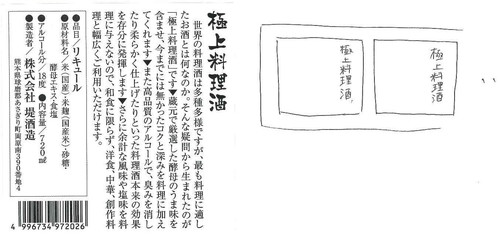 極上料理酒
世界の料理酒は多種多様ですが、最も料理に適し
たお酒とは何なのか。そんな疑問から生まれたのが
「極上料理酒」です▼蔵元で厳選した酵母のうま味を
含ませ、今までには無かったコクと深みを料理に加え
てくれます▼また高品質のアルコールで、臭みを消し
たり柔らかく仕上げたりといった料理酒本来の効果
を存分に発揮します▼さらに余計な風味や塩味を料
理に与えないので、和食に限らず、洋食、中華、創作料
理と幅広くご利用いただけます。
●品目／リキュール
●原材料名／米(国産)・米麹(国産米)・砂糖・
酵母エキス・食塩
●アルコール分／18度 ●内容量／720㎖
●製造者／株式会社 堤酒造
熊本県球磨郡あさぎり町岡原南390番地4
4 996734 972026
極上料理酒
極上料理酒